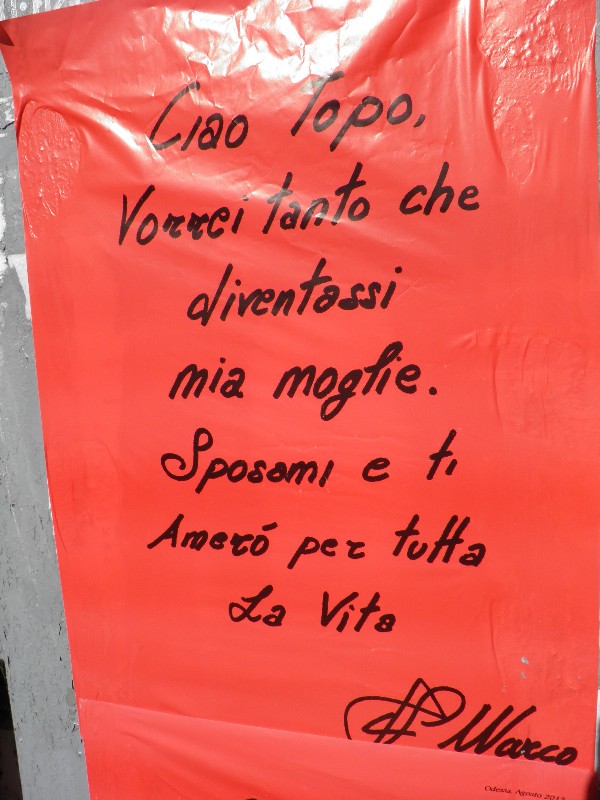 Ciao Topo,
Vorrei tanto che
diventassi
mia moglie.
Sposami e ti
Ameró per tutta
La Vita
Marco
Odessa, Agosto 2013